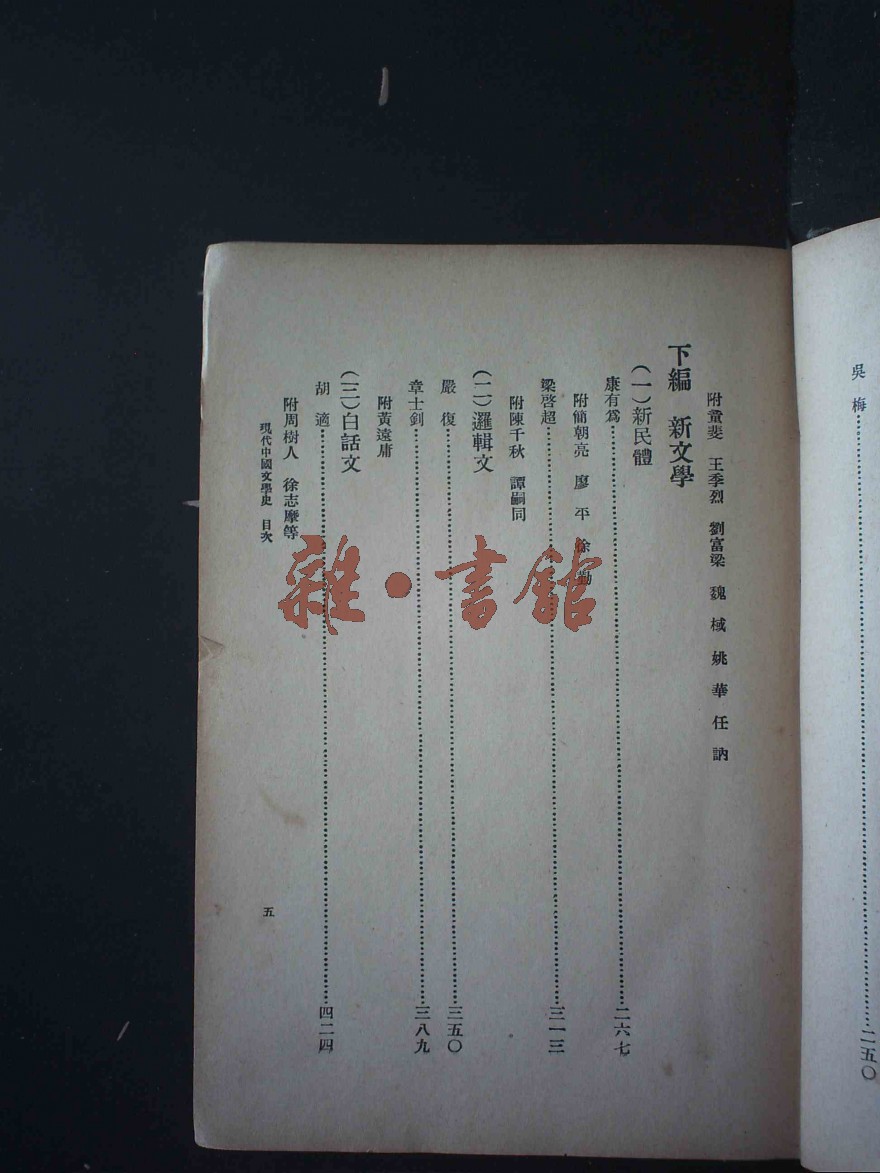 吳梅……二五〇
附童斐　王季烈　劉富梁　魏棫　姚華　任訥
下編　新文學
(一)新民體
康有爲……二六七
附簡朝亮　廖平　徐勤
梁啓超……三一三
附陳千秋　譚嗣同
(二)邏輯文
嚴復……三五〇
章士釗……三八九
附黃遠庸
(三)白話文
胡適……四二四
附周樹人　徐志摩等
現代中國文學史　目次
五
雜·書館